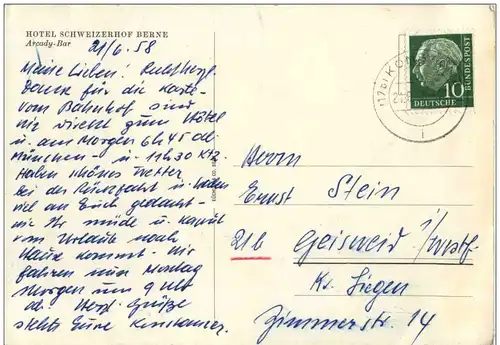 HOTEL SCHWEIZERHOF BERNE
Arcady-Bar
21/6. 58
Meine Lieben!
Dank für die Karte
vom Bahnhof sind
wir direkt zum Hotel
u. am Morgen 6h45 ab
München - u. 11h30 Ktz.
Haben schönes Wetter
bei der Rückfahrt u. haben
viel an Euch gedacht -
wie Ihr müde u. kaputt
vom Urlaube nach
Haus kommt. Wir
fahren nun Montag
Morgen um 9 Uhr
ab. Herzl. Grüße
stets Eure Konstanzer.
DEUTSCHE BUNDESPOST
10
Herrn
Ernst Stein
21b Geisweid i/Westf.
Kr. Siegen
Zimmerstr. 14